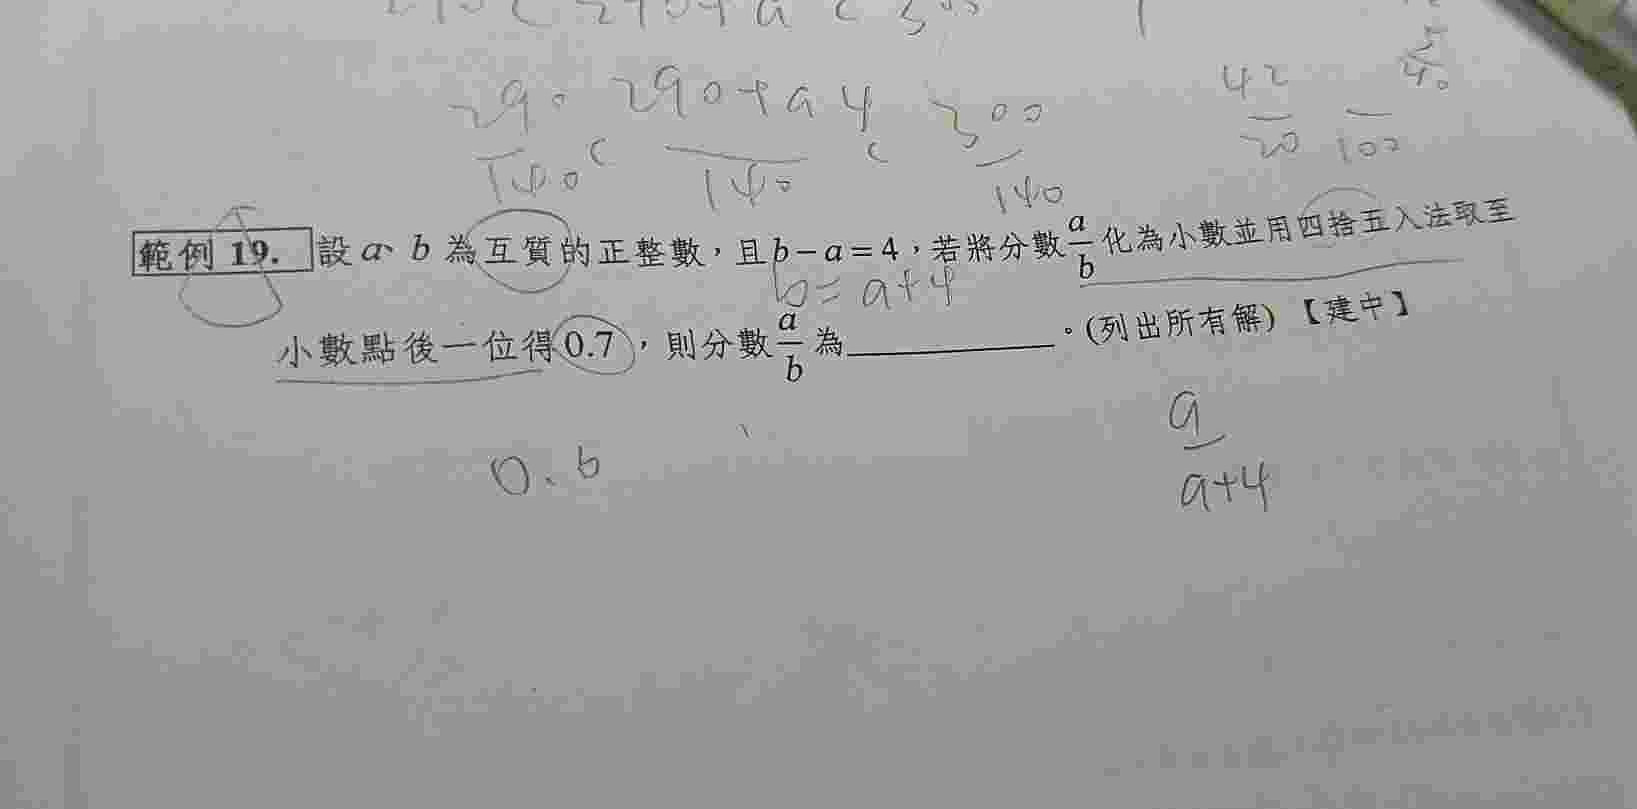 290 < 290+a4 < 300
140 140 140
42
20 100
5
40
範例 19. 設 a、b 為互質的正整數，且 b－a＝4，若將分數 a/b 化為小數並用四捨五入法取至
b＝a+4
小數點後一位得 0.7，則分數 a/b 為＿＿＿＿＿＿。(列出所有解)【建中】
a
a+4
0.6